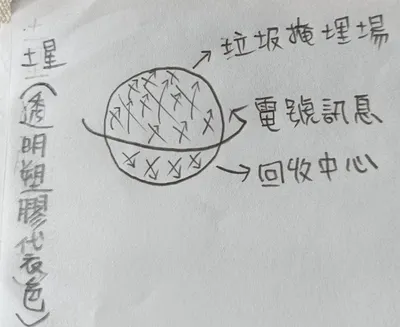 土星(透明塑膠代表色)
垃圾掩埋場
電號訊息
回收中心